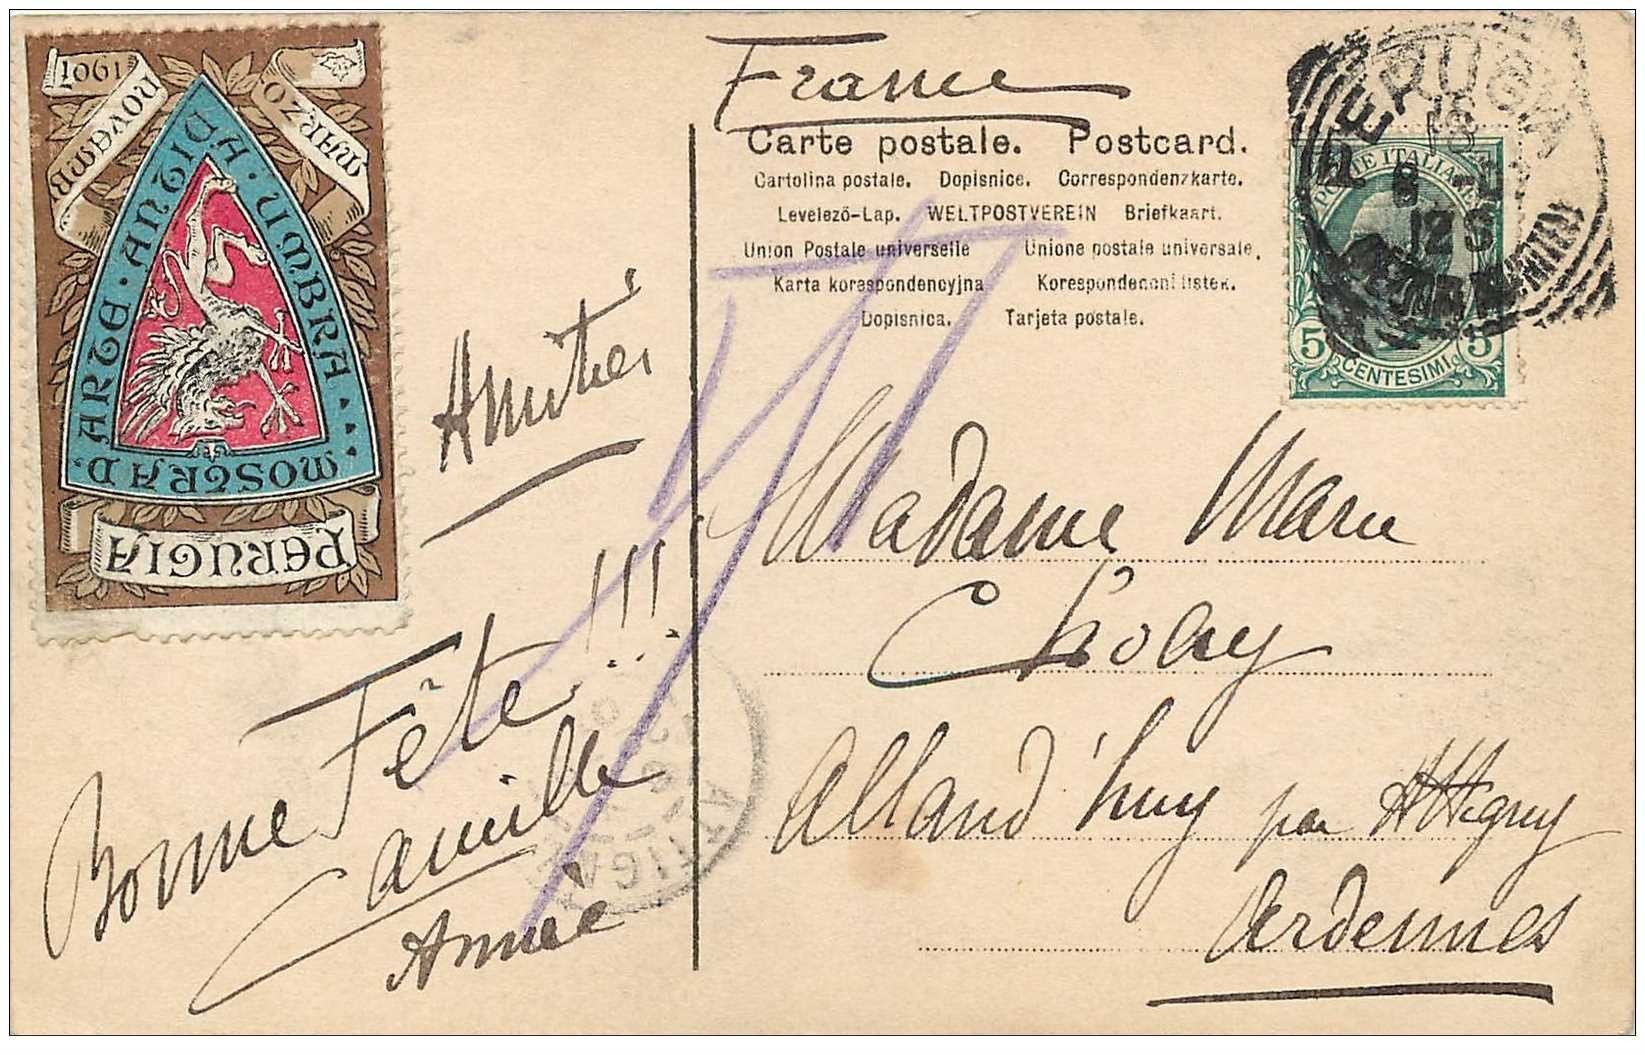 France
Carte postale. Postcard.
Cartolina postale. Dopisnice. Correspondenzkarte.
Levelező-Lap. WELTPOSTVEREIN Briefkaart.
Union Postale universelle Unione postale universale.
Karta korespondencyjna Korespondencni listek.
Dopisnica. Tarjeta postale.
POSTE ITALIANE
5 CENTESIMI 5
PERUGIA
MOSTRA D'ARTE · ANTICA · UMBRA
PERUGIA
MARZO
NOVEMB
1907
Amitiés
Bonne Fête !!!
Camille
Année
Madame Marie
Choky
Alland'huy par Attigny
Ardennes
ATTIGNY